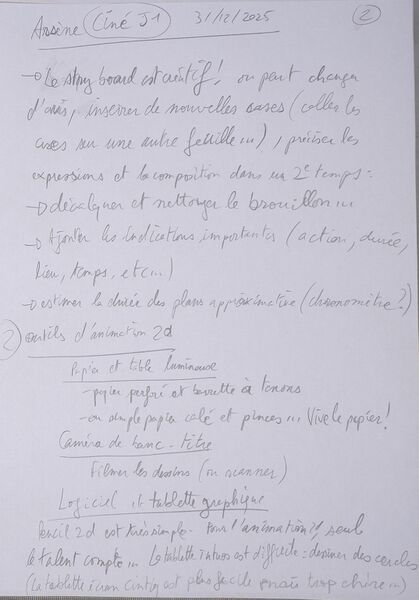 Arsène Ciné J1 31/12/2025 2
→ Le story board est créatif ! on peut changer
d'avis, insérer de nouvelles cases (coller les
cases sur une autre feuille...), préciser les
expressions et la composition dans un 2e temps.
→ décalquer et nettoyer le brouillon...
→ Ajouter les indications importantes (action, durée,
lieu, temps, etc...)
→ estimer la durée des plans approximative (chronomètre?)
2 outils d'animation 2d
Papier et table lumineuse
- papier perforé et barrette à tenons
- ou simple papier calé et pinces... Vive le papier!
Caméra de banc-titre
Filmer les dessins (ou scanner)
Logiciel et tablette graphique
Pencil 2d est très simple. Pour l'animation 2d, seul
le talent compte... La tablette intuos est difficile : dessiner des cercles
(La tablette écran Cintiq est plus facile mais trop chère...)